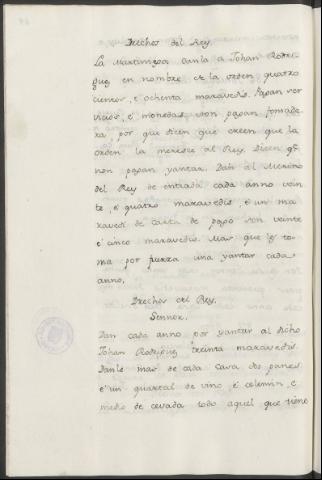 Drechos del Rey.
La Martiniega danla a Johan Rodri-
guez en nombre de la orden quatro
cientos, é ochenta maravedis. Pagan ser
vicios, é monedas. Non pagan fonsade
ra, por que dicen que creen que la
orden la merescie al Rey. Dicen q.e
non pagan yantar. Dan al Merino
del Rey de entrada cada anno vein
te, é quatro maravedis, é un ma
ravedi de carta de pago son veinte
é cinco maravedis. Mas que les to-
ma por fuerza una yantar cada
anno.
Drechos del Rey.
Sennor.
Dan cada anno por yantar al dicho
Johan Rodriguez treinta maravedis.
Danle mas de cada casa dos panes
é un quartal de vino, é celemin, é
medio de cevada todo aquel que tiene